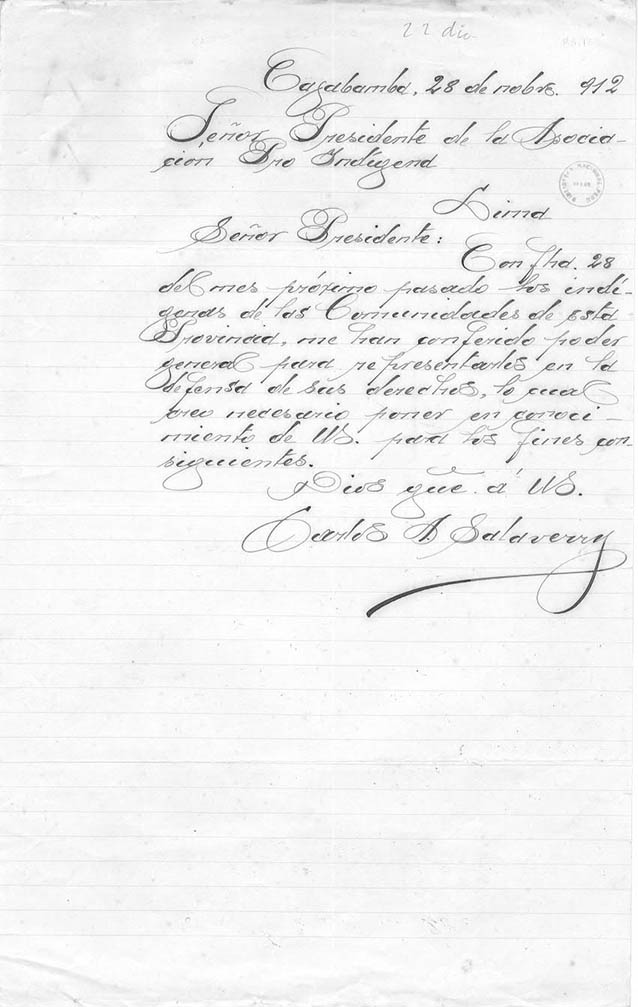 22 dic
Cajabamba, 28 de nobre. 912
Señor Presidente de la Asocia-
ción Pro Indígena
Lima
Señor Presidente:
Con fha. 28
del mes próximo pasado los indí-
genas de las Comunidades de esta
Provincia, me han conferido poder
general para representarlos en la
defensa de sus derechos, lo cual
creo necesario poner en conoci-
miento de US. para los fines con-
siguientes.
Dios gue. á US.
Carlos A Salaverry